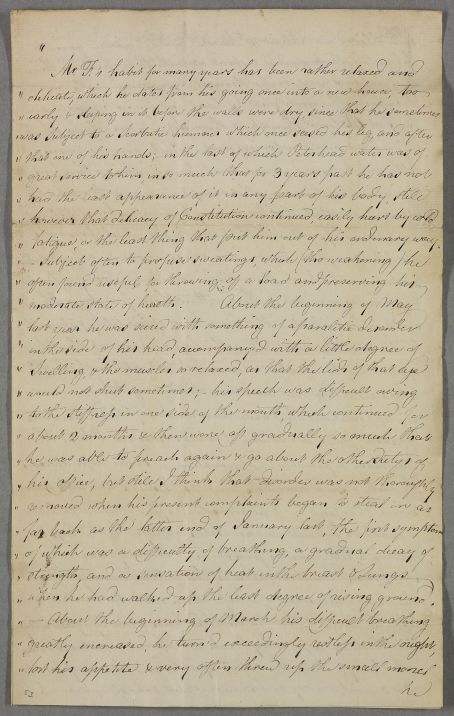 "
Mr F's habit for many years has been rather relaxed and
" delicate, which he dates from his going once into a new house, too
" early & sleeping in it before the walls were dry since that he sometimes
" was subject to a scorbutic humour which once seased his leg, and after
" that one of his hands; in the last of which Peterhead water was of
" great service to him in so much that for 3 years past he has not
" had the least appearance of it in any part of his body, still
" however that Delicacy of Constitution continued, easily hurt by cold
" fatigue, or the least thing that put him out of his ordinary way.
" – Subject often to profuse sweatings, which (tho weakening) he
" often found useful for throwing off a load and preserving him
" moderate state of health. About the beginning of May
" last year he was seized with something of a paralitic disorder
" in the side of his head, accompanyd with a little degree of
" Swelling & the muscles so relaxed, as that the lids of that eye
" would not shut sometimes; – his speech was difficult owing
" to the stiffness in one side of the mouth which continued for
" about 2 months & then wore off gradually so much that
" he was able to preach again & go about the other Dutys of
" his office, but still I think that disorder was not thoroughly
" removed when his present complaints began to steal in as
" far back as the latter end of January last, the first symptom
" of which was a difficulty of breathing, a gradual decay of
" strength, and a sensation of heat in the breast & Lungs
" when he had walked up the least degree of rising ground.
" – About the beginning of March his difficult breathing
" greatly encreased, he turn'd exceedingly restless in the night,
" lost his appetite & very often threw up the small morsel
he
53